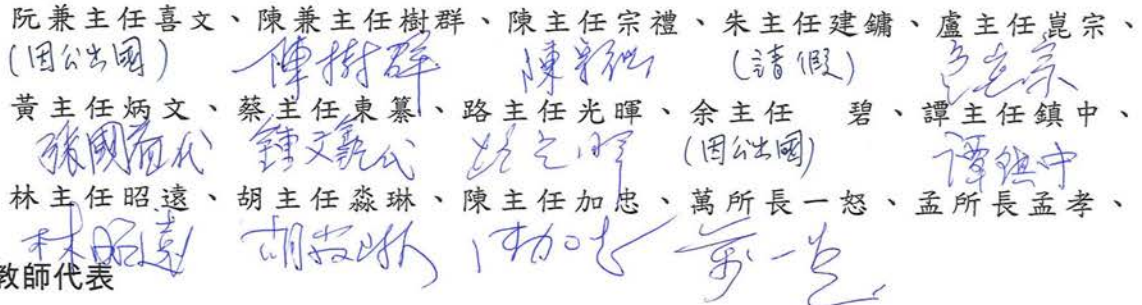 阮兼主任喜文、陳兼主任樹群、陳主任宗禮、朱主任建鏞、盧主任崑宗、
(因公出國) 陳樹群 陳宗禮 (請假) 盧崑宗
黃主任炳文、蔡主任東纂、路主任光暉、余主任　碧、譚主任鎮中、
張國益代 鍾文鑫代 路光暉 (因公出國) 譚鎮中
林主任昭遠、胡主任淼琳、陳主任加忠、萬所長一怒、孟所長孟孝、
林昭遠 胡淼琳 陳加忠 萬一怒
教師代表